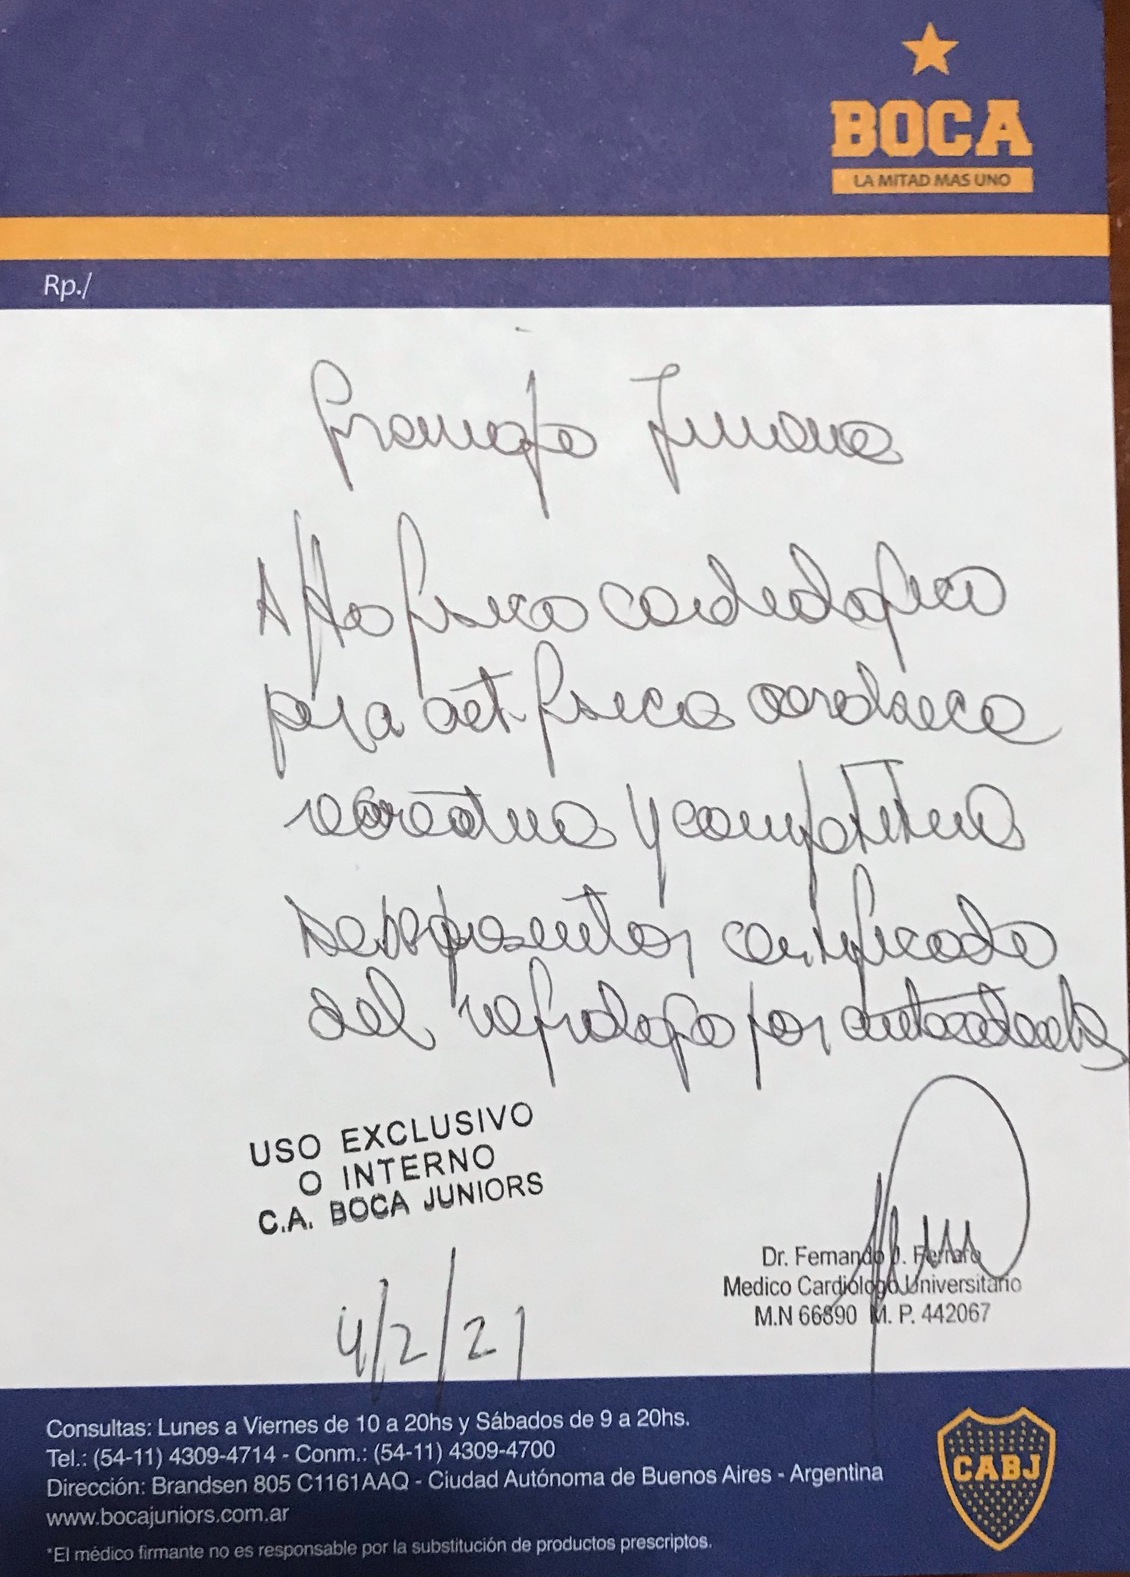 BOCA
LA MITAD MAS UNO
Rp./
Apto fisico cardiologico
para act. fisica cardiaca
recreativa y competitiva
Debe presentar certificado
del nefrologo por
USO EXCLUSIVO
O INTERNO
C.A. BOCA JUNIORS
4/2/21
Dr. Fernando J. Ferrara
Medico Cardiólogo Universitario
M.N 66890 M. P. 442067
Consultas: Lunes a Viernes de 10 a 20hs y Sábados de 9 a 20hs.
Tel.: (54-11) 4309-4714 - Conm.: (54-11) 4309-4700
Dirección: Brandsen 805 C1161AAQ - Ciudad Autónoma de Buenos Aires - Argentina
www.bocajuniors.com.ar
*El médico firmante no es responsable por la substitución de productos prescriptos.
CABJ